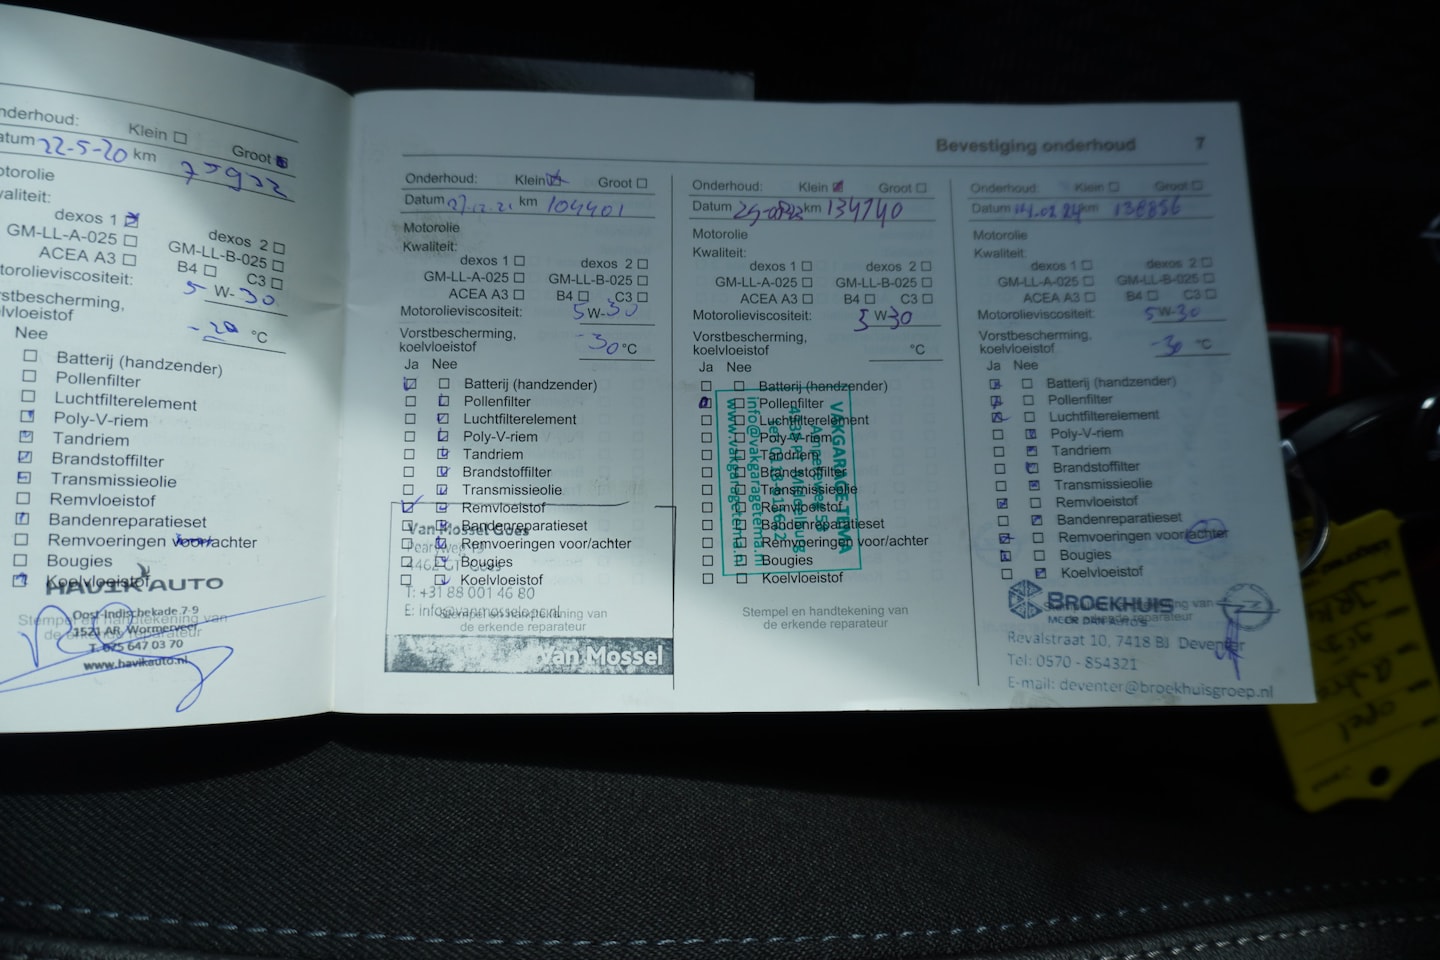 Onderhoud: Klein Groot
Datum 22-5-20 km 75922
Motorolie
Kwaliteit:
dexos 1 dexos 2
GM-LL-A-025 GM-LL-B-025
ACEA A3 B4 C3
Motorolieviscositeit: 5 W-30
Vorstbescherming,
koelvloeistof -20 °C
Nee
Batterij (handzender)
Pollenfilter
Luchtfilterelement
Poly-V-riem
Tandriem
Brandstoffilter
Transmissieolie
Remvloeistof
Bandenreparatieset
Remvoeringen voor/achter
Bougies
Koelvloeistof
HAVIK AUTO
Oost-Indischekade 7-9
1521 AR Wormerveer
T. 075 647 03 70
www.havikauto.nl
Stempel en handtekening van
de erkende reparateur
Bevestiging onderhoud 7
Onderhoud: Klein Groot
Datum 27.12.21 km 104401
Motorolie
Kwaliteit:
dexos 1 dexos 2
GM-LL-A-025 GM-LL-B-025
ACEA A3 B4 C3
Motorolieviscositeit: 5 W-30
Vorstbescherming,
koelvloeistof -30 °C
Ja Nee
Batterij (handzender)
Pollenfilter
Luchtfilterelement
Poly-V-riem
Tandriem
Brandstoffilter
Transmissieolie
Remvloeistof
Bandenreparatieset
Remvoeringen voor/achter
Bougies
Koelvloeistof
Van Mossel Goes
T: +31 88 001 46 80
E: info@vanmosselopel.nl
Stempel en handtekening van
de erkende reparateur
Van Mossel
Onderhoud: Klein Groot
Datum km 134740
Motorolie
Kwaliteit:
dexos 1 dexos 2
GM-LL-A-025 GM-LL-B-025
ACEA A3 B4 C3
Motorolieviscositeit: 5 W-30
Vorstbescherming,
koelvloeistof °C
Ja Nee
Batterij (handzender)
Pollenfilter
Luchtfilterelement
Poly-V-riem
Tandriem
Brandstoffilter
Transmissieolie
Remvloeistof
Bandenreparatieset
Remvoeringen voor/achter
Bougies
Koelvloeistof
VAKGARAGE TEMA
Middelburg
info@vakgaragetema.nl
www.vakgaragetema.nl
Stempel en handtekening van
de erkende reparateur
Onderhoud: Klein Groot
Datum 14.02.24 km 138856
Motorolie
Kwaliteit:
dexos 1 dexos 2
GM-LL-A-025 GM-LL-B-025
ACEA A3 B4 C3
Motorolieviscositeit: 5 W-30
Vorstbescherming,
koelvloeistof -30 °C
Ja Nee
Batterij (handzender)
Pollenfilter
Luchtfilterelement
Poly-V-riem
Tandriem
Brandstoffilter
Transmissieolie
Remvloeistof
Bandenreparatieset
Remvoeringen voor/achter
Bougies
Koelvloeistof
BROEKHUIS
MEER DAN AUTO'S
Revalstraat 10, 7418 BJ Deventer
Tel: 0570 - 854321
E-mail: deventer@broekhuisgroep.nl
opel